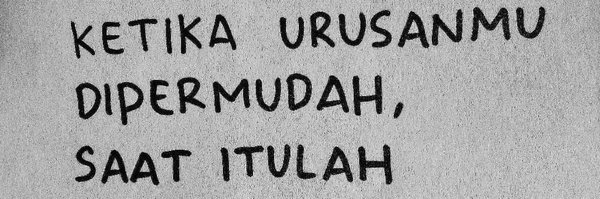 KETIKA URUSANMU
DIPERMUDAH,
SAAT ITULAH